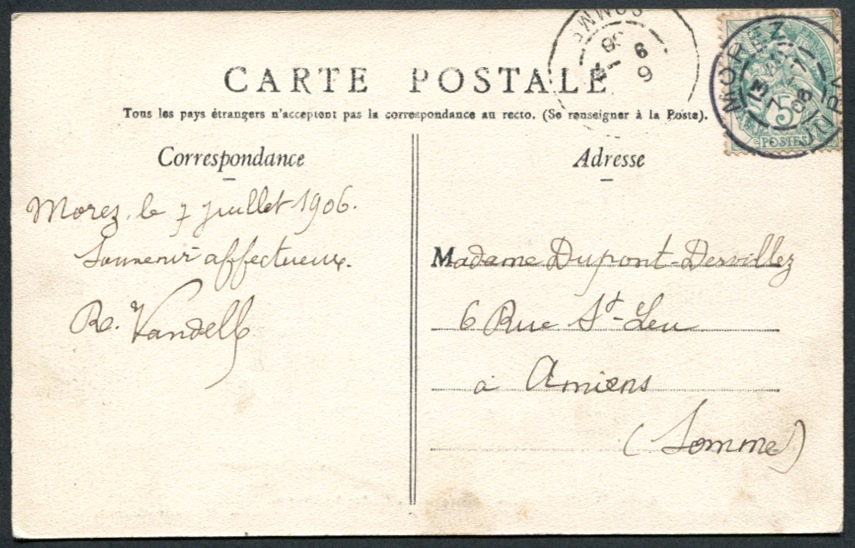 CARTE POSTALE
Tous les pays étrangers n'acceptent pas la correspondance au recto. (Se renseigner à la Poste).
Correspondance
Morez, le 7 juillet 1906.
Souvenir affectueux.
R. Vandell
Adresse
Madame Dupont-Dervillez
6 Rue St-Leu
à Amiens
(Somme)
MOREZ
JURA
5
POSTES
SOMME